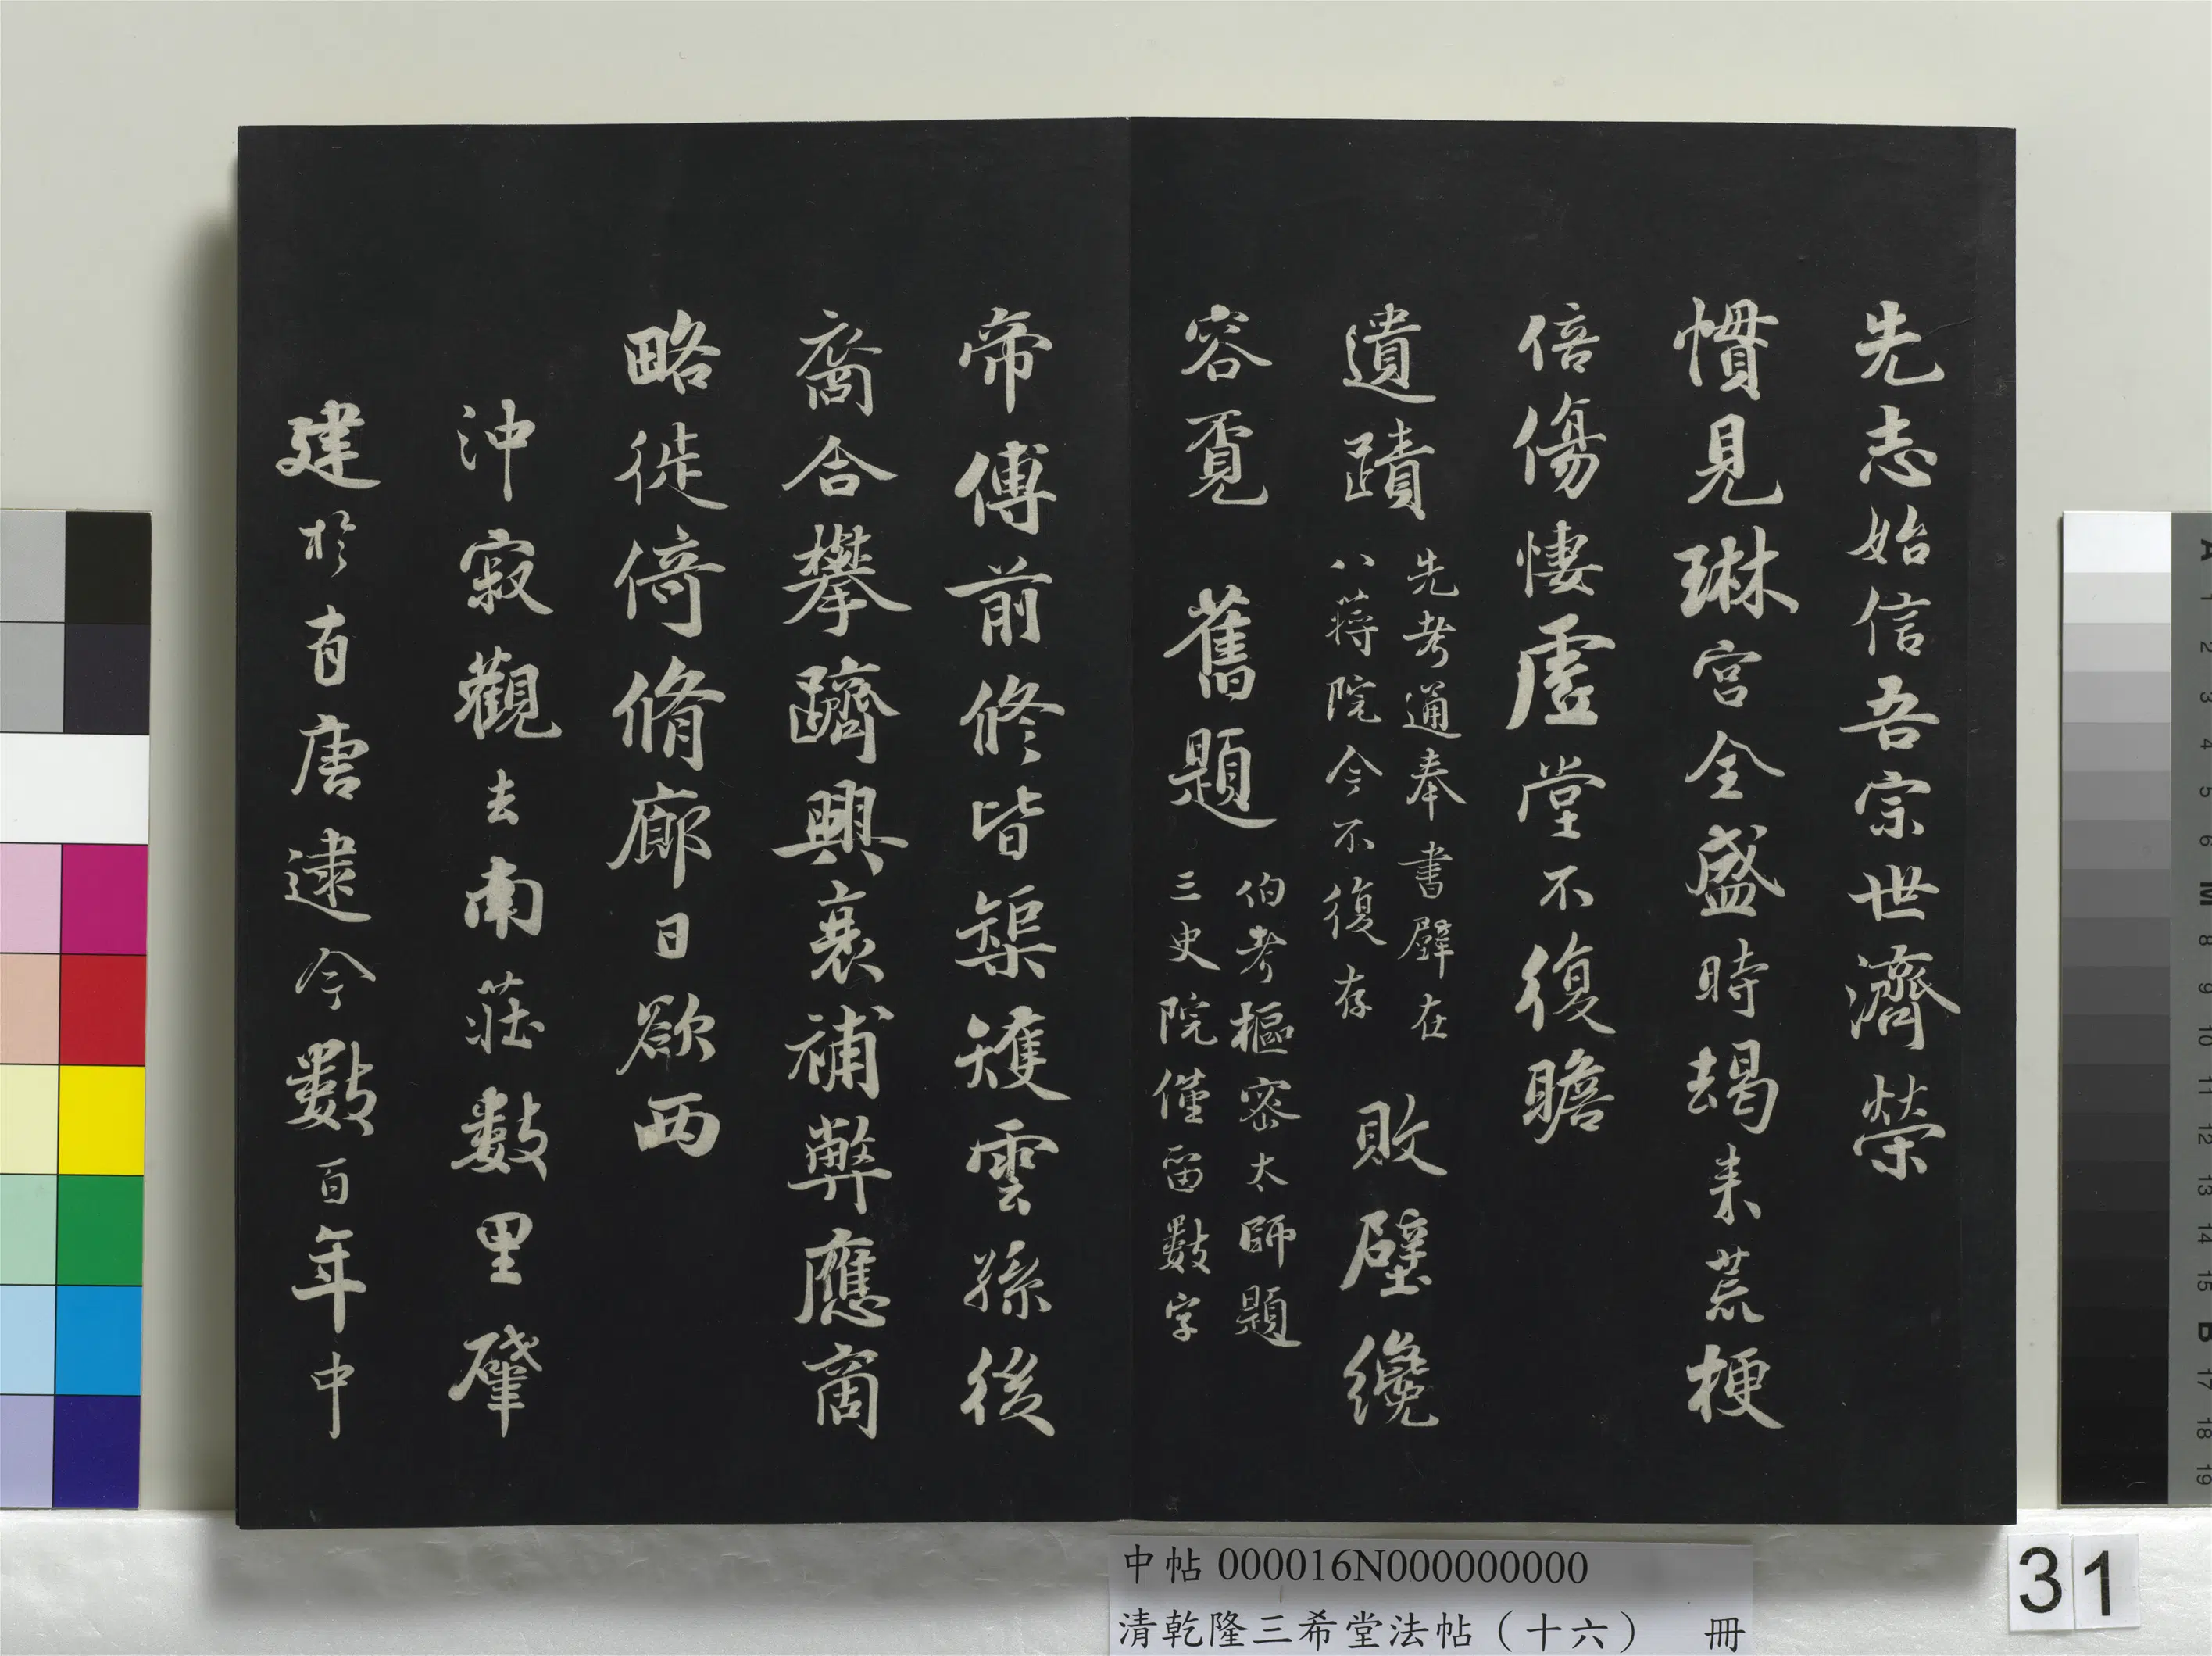 先志始信吾宗世濟榮
慣見琳宮全盛時朅来荒梗
倍傷悽虗堂不復瞻
遺蹟
先考通奉書壁在
八蒋院今不復存
敗壁纔
容覔舊題
伯考樞密太師題
三史院僅留數字
帝傅前修皆榘矱雲孫後
裔合攀躋興衰補弊應商
略徙倚脩廊日欲西
沖寂觀去南莊數里肇
建於有唐逮今數百年中
中帖 000016N000000000
清乾隆三希堂法帖（十六） 冊
31
A 1 2 3 4 5 6 M 8 9 10 11 12 13 14 15 B 17 18 19